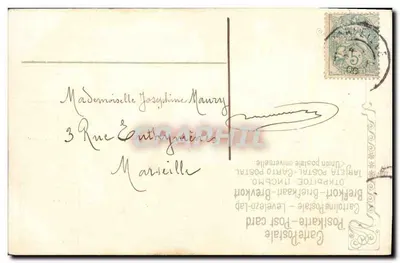 Mademoiselle Josephine Maury
3 Rue
Marseille
Carte Postale
Postkarte - Post card
Cartolina Postale - Levelező-Lap
Brefkort - Briefkaart - Brevkort
ОТКРЫТОЕ ПИСЬМО
TARJETA POSTAL - CARTÃO POSTAL
Union postale universelle